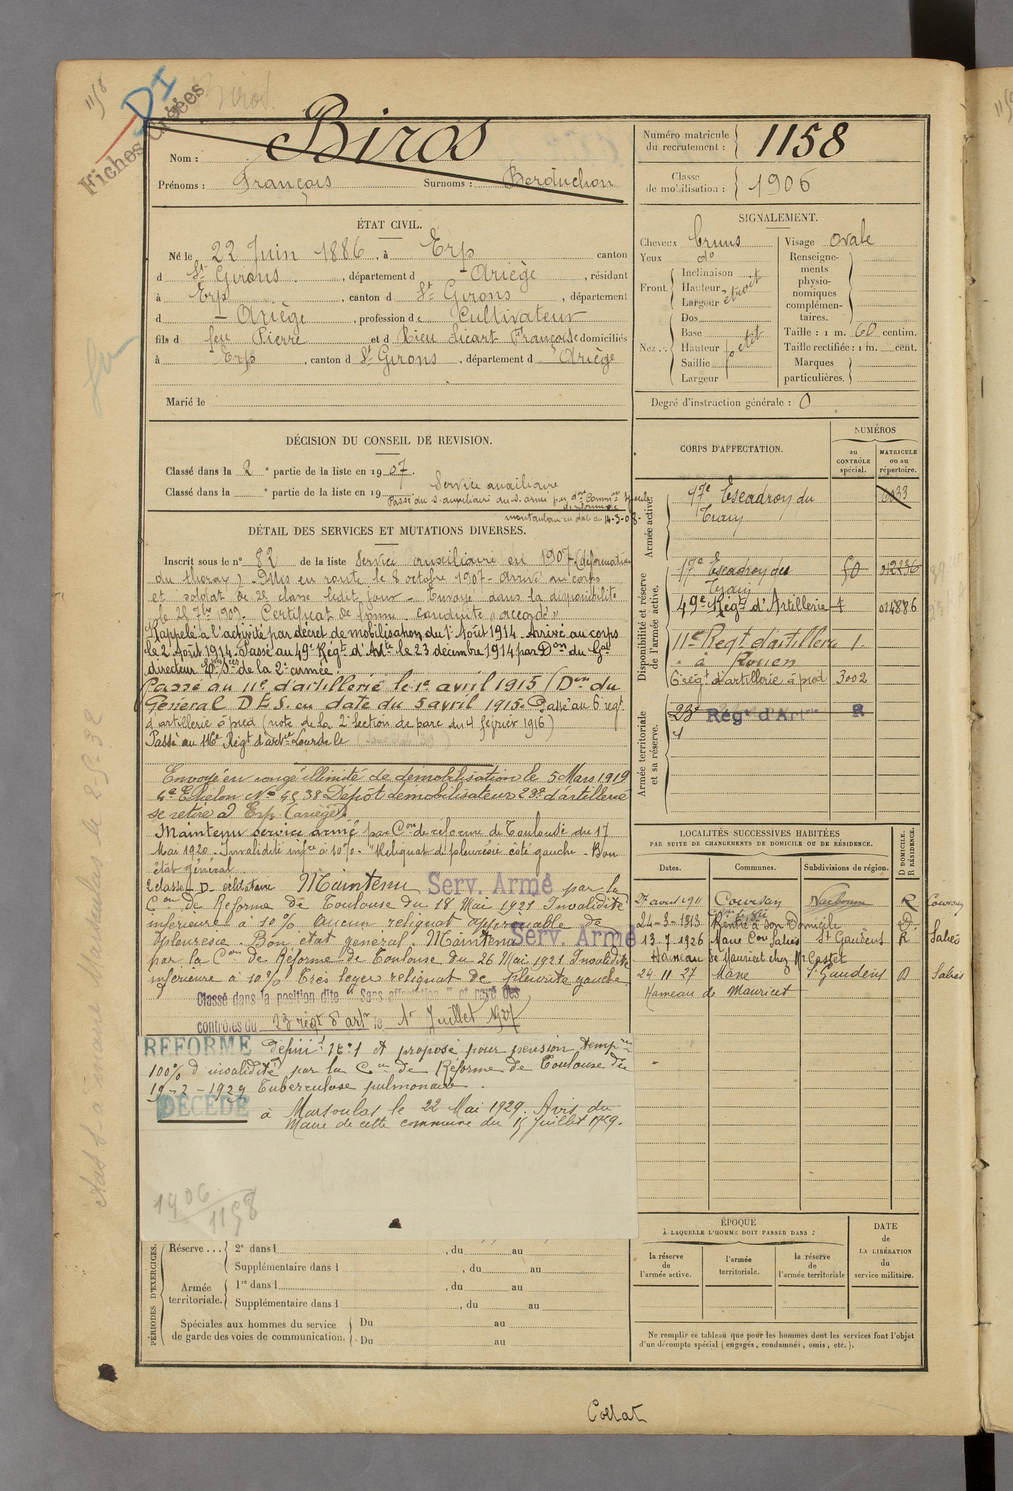 11/8
DI
Fiches Créées
Biros
Nom : Biros
Prénoms : François Surnoms : Berduchon
Numéro matricule du recrutement : 1158
Classe de mobilisation : 1906
ÉTAT CIVIL.
Né le 22 Juin 1886, à Erp canton
d St Girons, département d Ariège, résidant
à Erp, canton d St Girons, département
d Ariège, profession de Cultivateur
fils d feu Pierre et d Rieu Licart Françoise domiciliés
à Erp, canton d St Girons, département d Ariège
Marié le
SIGNALEMENT.
Cheveux bruns
Yeux do
Front. Inclinaison
Hauteur
Largeur étroit
Nez.. Dos
Base
Hauteur petit
Saillie
Largeur
Visage ovale
Renseignements physionomiques complémentaires.
Taille : 1 m. 60 centim.
Taille rectifiée : 1 m. cent.
Marques particulières.
Degré d'instruction générale : 0
DÉCISION DU CONSEIL DE REVISION.
Classé dans la 2e partie de la liste en 1907.
Service auxiliaire
Classé dans la e partie de la liste en 19
Passé du s. auxiliaire au s. armé par don Comm. Spéciale
de réforme de
montauban en date du 14-3-08-
DÉTAIL DES SERVICES ET MUTATIONS DIVERSES.
Inscrit sous le n° 82 de la liste Service auxiliaire en 1907 (déformation
du thorax). Mis en route le 8 octobre 1907 - arrivé au corps
et soldat de 2e classe ledit jour - Envoyé dans la disponibilité
le 25 7bre 1909. Certificat de bonne conduite "accordé"
Rappelé à l'activité par décret de mobilisation du 1r Août 1914. Arrivé au corps
le 2 Août 1914. Passé au 49e Régt d'Artie le 23 décembre 1914 par Don du Gal
directeur Etes Sces de la 2e armée.
Passé au 11e d'artillerie le 1e avril 1915 (Don du
General D.E.S. en date du 5 avril 1915. Passé au 6e régt
d'artillerie à pied (note de la 2e section de parc du 4 février 1916)
Passé au 116e Régt d'artie Lourde le
Envoyé en congé illimité de démobilisation le 5 Mars 1919
4e Echelon No 4538 Dépôt démobilisateur 23e d'artillerie
se retire à Erp (ariège).
Maintenu service armé par Con de réforme de Toulouse du 17
Mai 1920. Invalidité infre à 10%. "Reliquat de pleurésie côté gauche - Bon
état général
Maintenu Serv. Armé par la
Con de Réforme de Toulouse du 18 Mai 1921 Invalidité
inférieure à 10% aucun reliquat appréciable de
pleurésie. Bon état general. Maintenu Serv. Armé
par la Con de Réforme de Toulouse du 26 Mai 1921 Invalidité
inférieure à 10% Très leger reliquat de pleurite gauche
Classé dans la position dite "Sans affectation" et rayé des
contrôles du 23 régt d'artie le 1r Juillet 1927
RÉFORMÉ définit. 1e/1 et proposé pour pension tempre
100% d'invalidité par la Con de Réforme de Toulouse du
19-2-1929 Tuberculose pulmonaire.
DÉCÉDÉ à Marsoulas le 22 Mai 1929. Avis du
Maire de cette commune du 15 Juillet 1929.
1906
1158
CORPS D'AFFECTATION.
NUMÉROS
AU CONTRÔLE spécial.
MATRICULE ou au répertoire.
Armée active.
17e Escadron du
Train
Disponibilité et réserve de l'armée active.
17e Escadron des Train 50
49e Régt d'Artillerie 024886
11e Regt d'artillerie 1.
à Rouen
6e régt d'artillerie à pied 3002
Armée territoriale et sa réserve.
23e Régt d'Artie R
LOCALITÉS SUCCESSIVES HABITÉES
PAR SUITE DE CHANGEMENTS DE DOMICILE OU DE RÉSIDENCE.
Dates. Communes. Subdivisions de région. D DOMICILE. R RÉSIDENCE.
27 avril 1911 Coursan Narbonne R Coursan
24-3-1913 Rentré à son Domicile D.
13-7-1926 Mane Con Salies St Gaudens R Salies
Hameau de Mauricet chez Mr Castet
24 11 27 Mane St Gaudens D Salies
Hameau de Mauricet
ÉPOQUE
À LAQUELLE L'HOMME DOIT PASSER DANS :
la réserve de l'armée active.
l'armée territoriale.
la réserve de l'armée territoriale
DATE de LA LIBÉRATION du service militaire.
PÉRIODES D'EXERCICES.
Réserve... 2e dans l , du au
Supplémentaire dans l , du au
Armée territoriale. 1re dans l , du au
Supplémentaire dans l , du au
Spéciales aux hommes du service de garde des voies de communication. Du au
Du au
Ne remplir ce tableau que pour les hommes dont les services font l'objet
d'un décompte spécial (engagés, condamnés, omis, etc.).